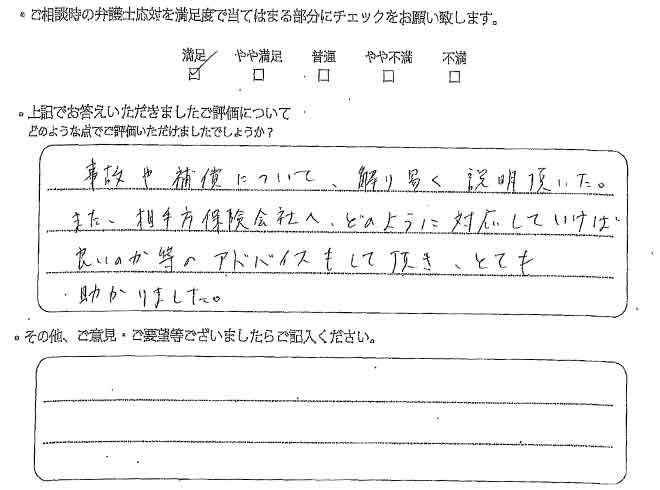 ・ご相談時の弁護士応対を満足度で当てはまる部分にチェックをお願い致します。
満足 やや満足 普通 やや不満 不満
☑ □ □ □ □
・上記でお答えいただきましたご評価について
どのような点でご評価いただけましたでしょうか?
事故や補償について、解り易く説明頂いた。
また、相手方保険会社へ、どのように対応していけば
良いのか等のアドバイスもして頂き、とても
助かりました。
・その他、ご意見・ご要望等ございましたらご記入ください。